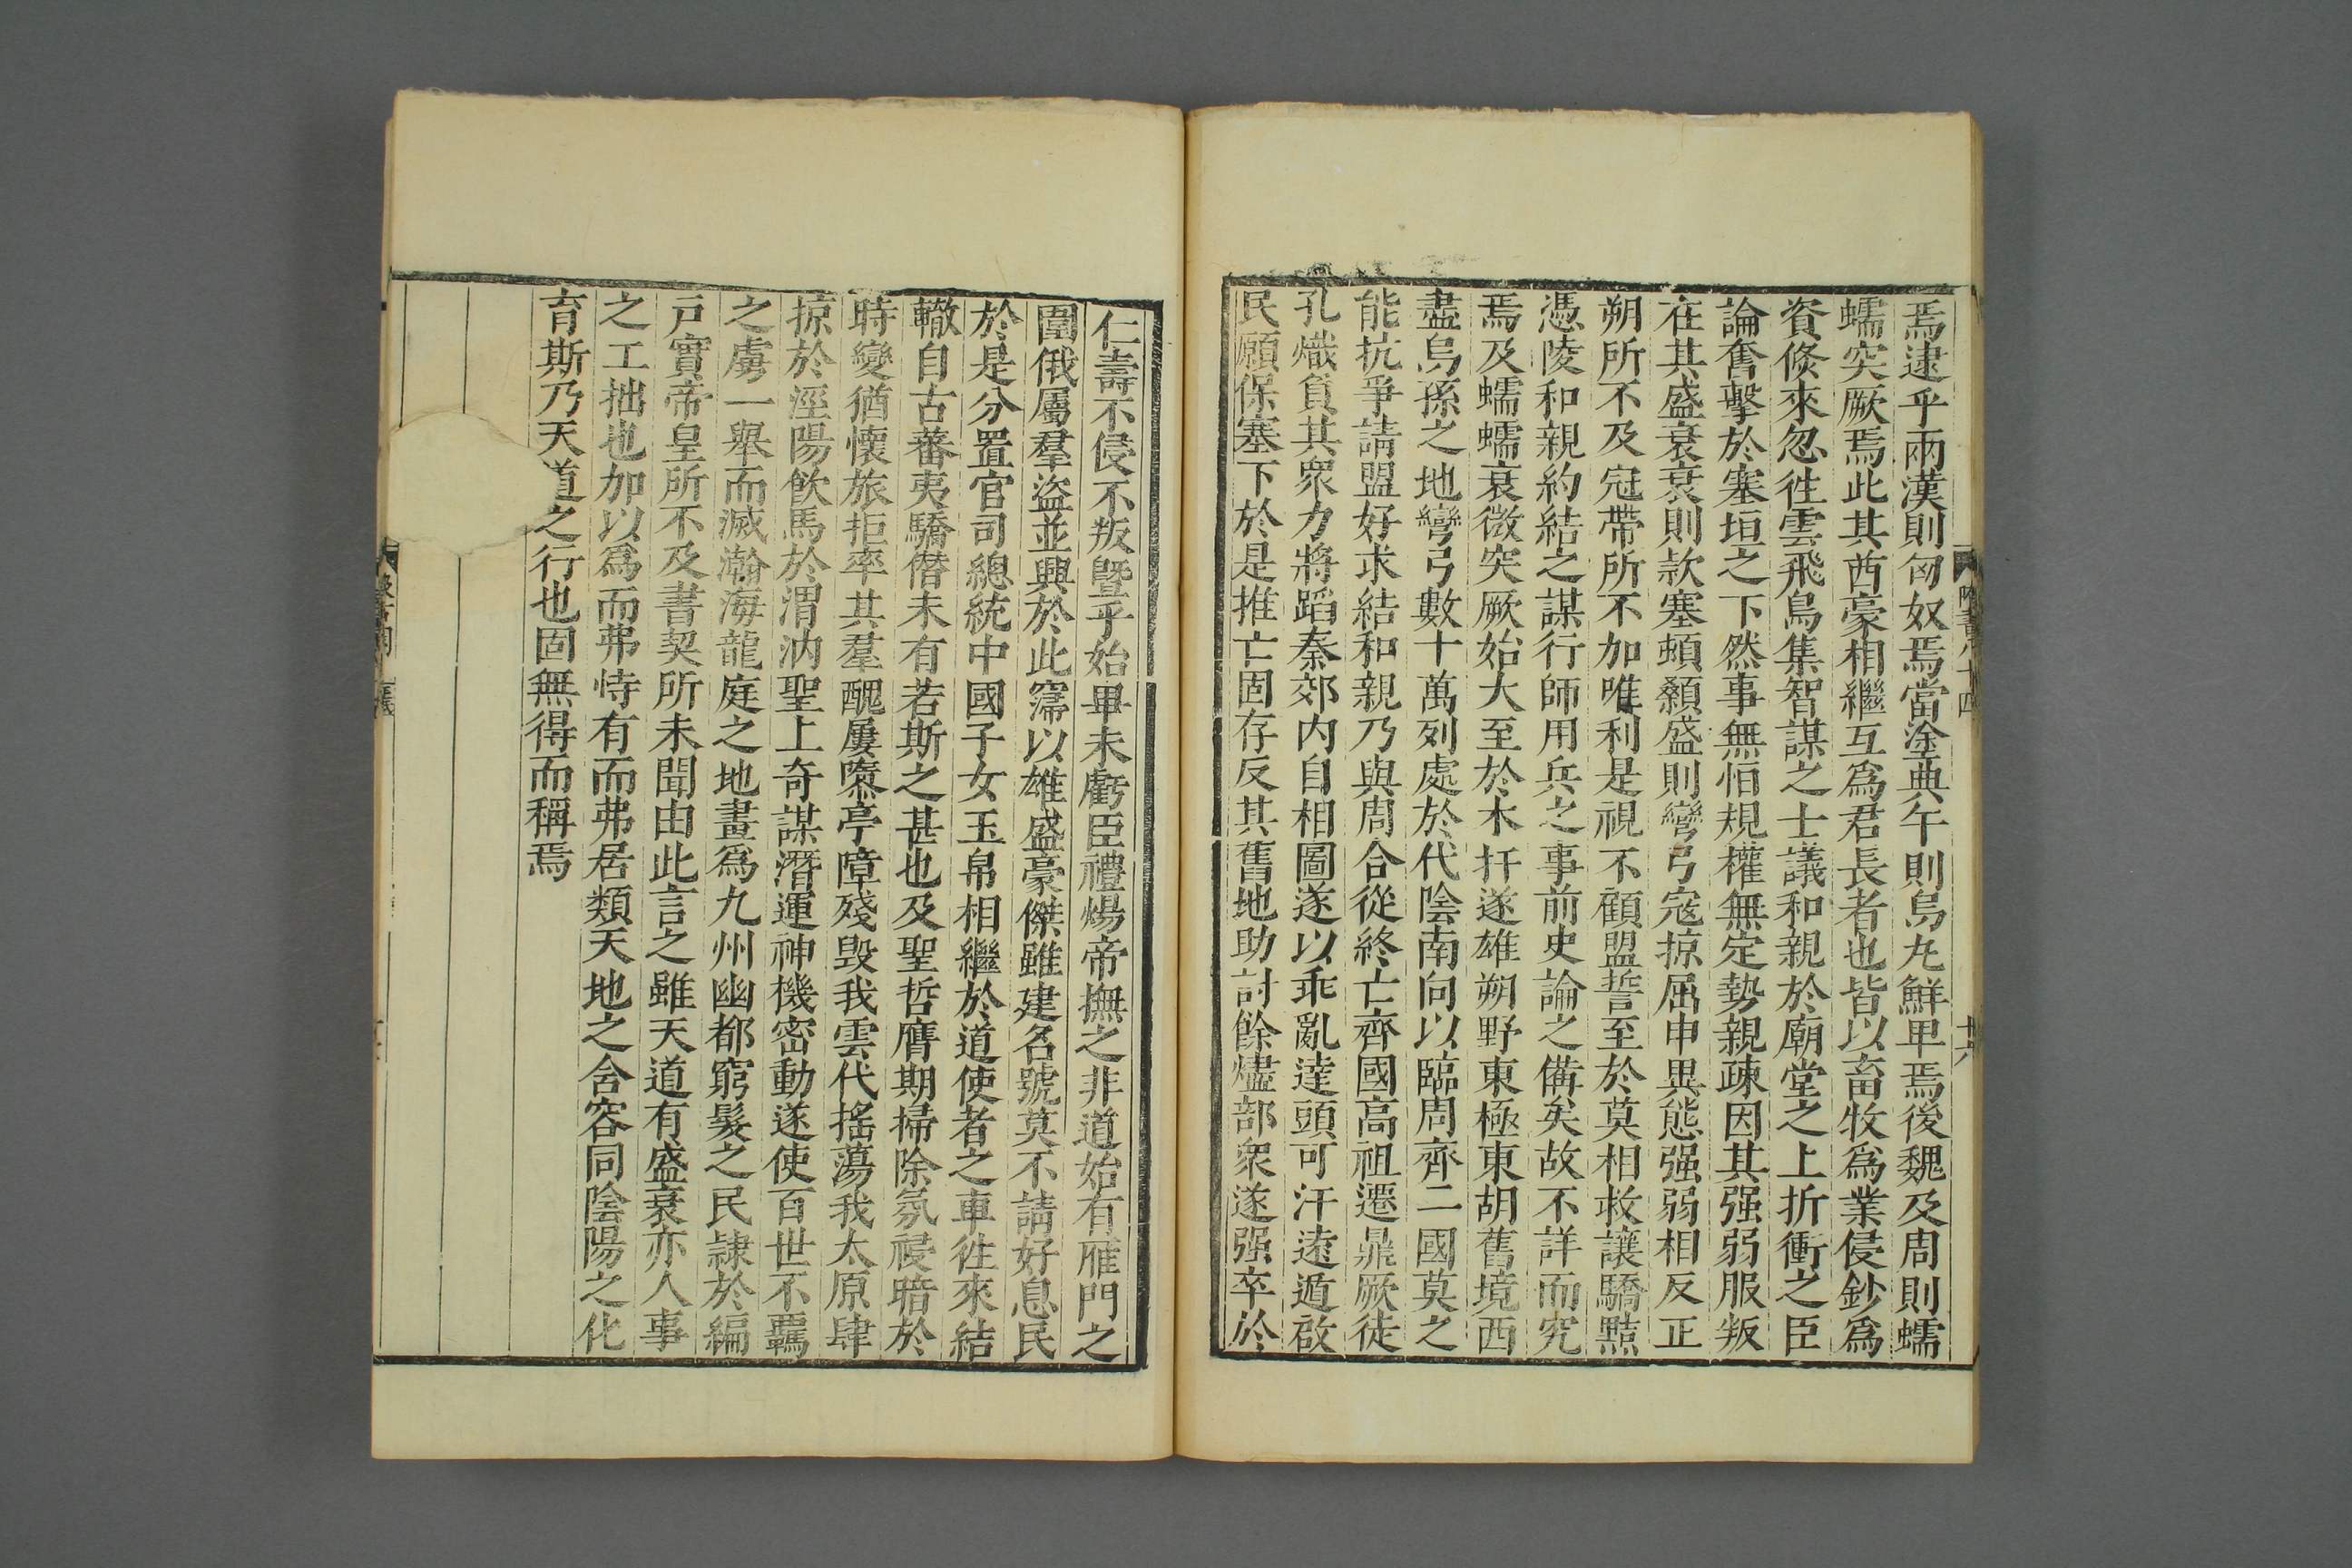 焉逮乎兩漢則匈奴焉當塗典午則烏丸鮮卑焉後魏及周則蠕
蠕突厥焉此其酋豪相繼互爲君長者也皆以畜牧爲業侵鈔爲
資倐來忽徃雲飛鳥集智謀之士議和親於廟堂之上折衝之臣
論奮擊於塞垣之下然事無恒規權無定勢親疎因其强弱服叛
在其盛衰衰則款塞頓顙盛則彎弓寇掠屈申異態强弱相反正
朔所不及冠帶所不加唯利是視不顧盟誓至於莫相救讓驕黠
憑陵和親約結之謀行師用兵之事前史論之備矣故不詳而究
焉及蠕蠕衰微突厥始大至於木扞遂雄朔野東極東胡舊境西
盡烏孫之地彎弓數十萬列處於代陰南向以臨周齊二國莫之
能抗爭請盟好求結和親乃與周合從終亡齊國高祖遷鼎厥徒
孔熾負其衆力將蹈秦郊内自相圖遂以乖亂達頭可汗遠遁啟
民願保塞下於是推亡固存反其舊地助討餘燼部衆遂强卒於
仁壽不侵不叛曁乎始畢未虧臣禮煬帝撫之非道始有雁門之
圍俄屬羣盜並興於此寖以雄盛豪傑雖建名號莫不請好息民
於是分置官司總統中國子女玉帛相繼於道使者之車徃來結
轍自古蕃夷驕僭未有若斯之甚也及聖哲膺期掃除氛祲暗於
時變猶懷旅拒率其羣醜屢隳亭障殘毁我雲代搖蕩我太原肆
掠於涇陽飮馬於渭汭聖上奇謀潛運神機密動遂使百世不羈
之虜一舉而滅瀚海龍庭之地畫爲九州幽都窮髮之民隷於編
戶實帝皇所不及書契所未聞由此言之雖天道有盛衰亦人事
之工拙也加以爲而弗恃有而弗居類天地之含容同陰陽之化
育斯乃天道之行也固無得而稱焉
隋書八十四
十六